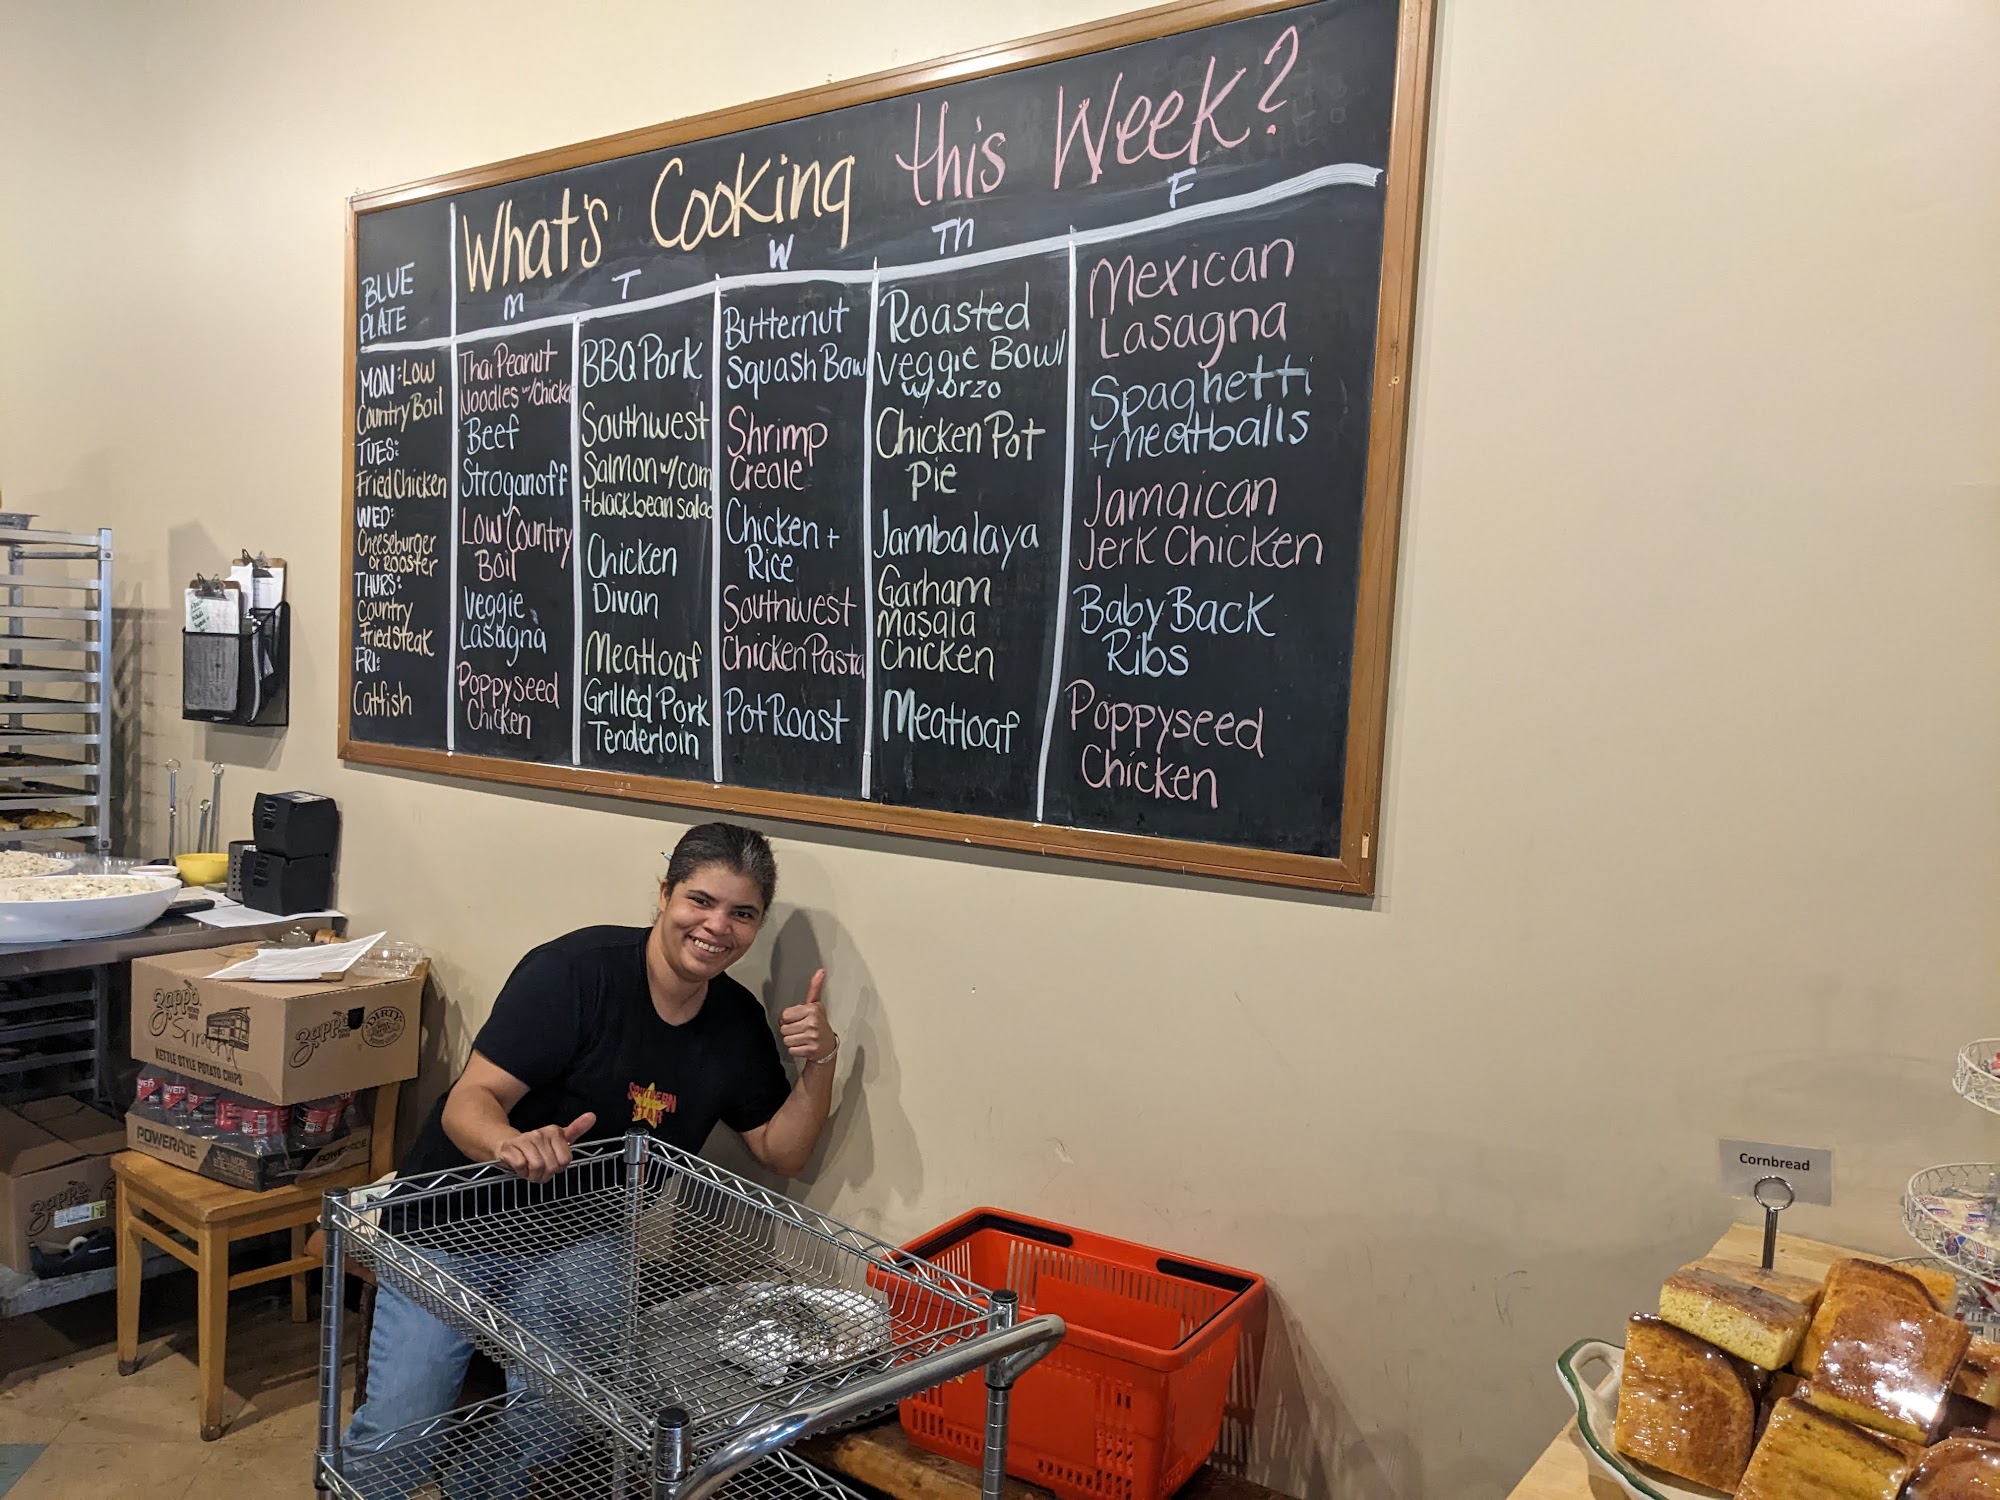 What's Cooking this Week?
BLUE
PLATE
MON: Low
Country Boil
TUES:
Fried Chicken
WED:
Cheeseburger
or Rooster
THURS:
Country
Fried Steak
FRI:
Catfish
M
Thai Peanut
Noodles w/Chicken
Beef
Stroganoff
Low Country
Boil
Veggie
Lasagna
Poppyseed
Chicken
T
BBQ Pork
Southwest
Salmon w/corn
+blackbean salad
Chicken
Divan
Meatloaf
Grilled Pork
Tenderloin
W
Butternut
Squash Bowl
Shrimp
Creole
Chicken +
Rice
Southwest
Chicken Pasta
Pot Roast
Th
Roasted
Veggie Bowl
w/ orzo
Chicken Pot
Pie
Jambalaya
Garham
Masala
Chicken
Meatloaf
F
Mexican
Lasagna
Spaghetti
+meatballs
Jamaican
Jerk Chicken
Baby Back
Ribs
Poppyseed
Chicken
Zapp's
Sriracha
KETTLE STYLE POTATO CHIPS
Zapp's
DIRTY
POWERADE
POWERADE
Zapp's
SOUTHERN
STAR
Cornbread